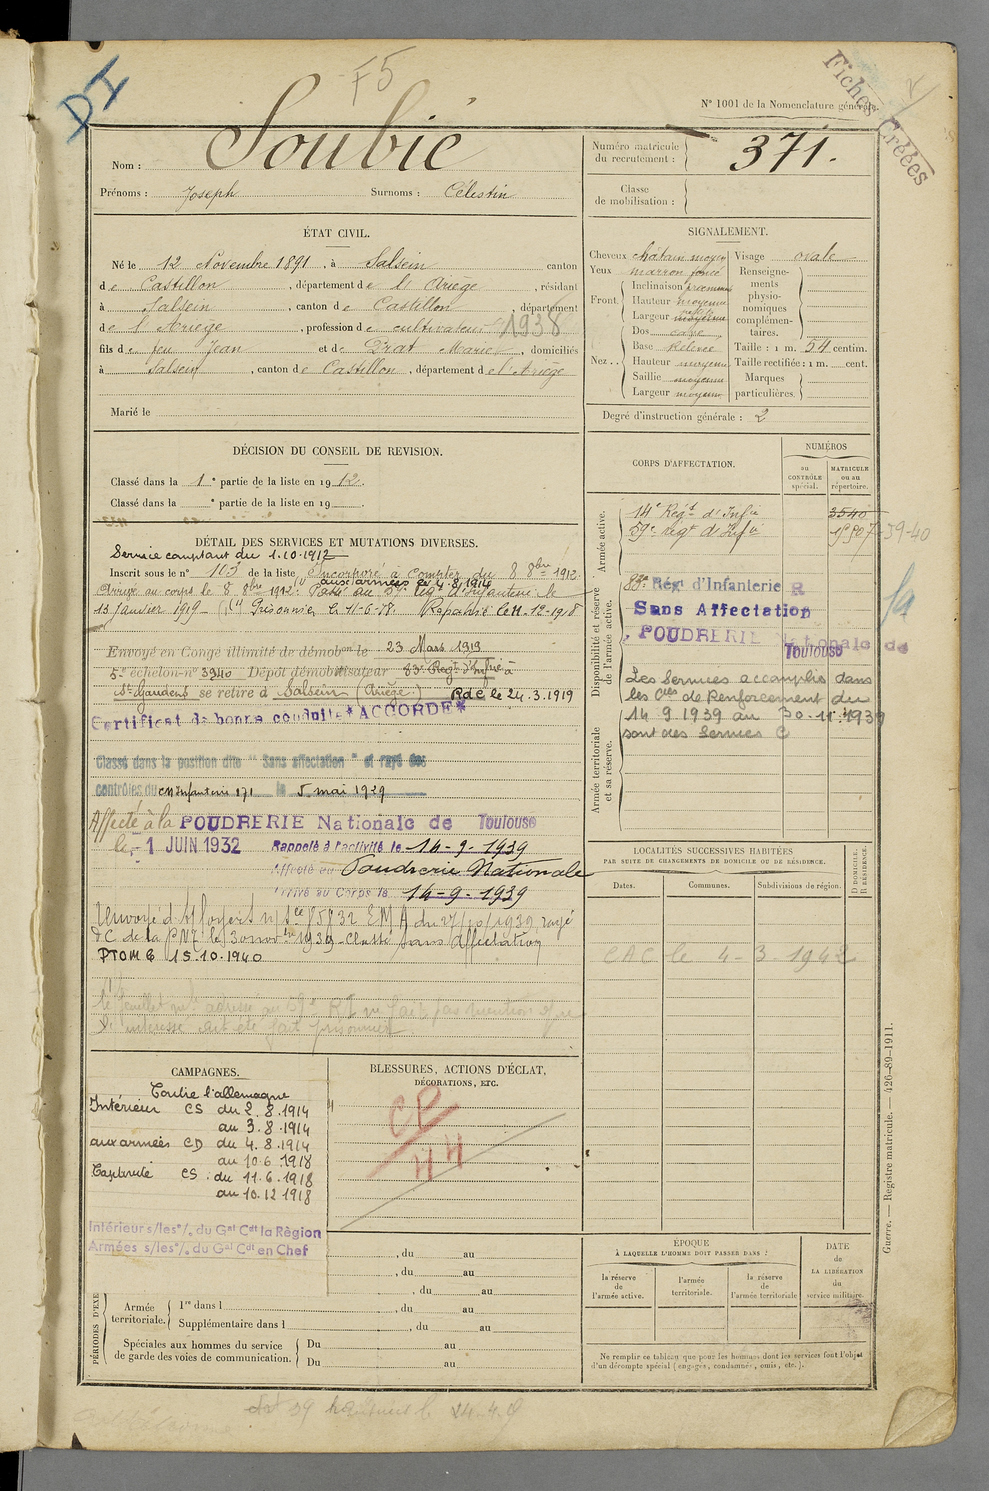 DI
F5
Fiches Créées
N° 1001 de la Nomenclature générale.
Nom : Soubie
Prénoms : Joseph Surnoms : Célestin
Numéro matricule du recrutement : 371.
Classe de mobilisation :
ÉTAT CIVIL.
Né le 12 Novembre 1891, à Salsein canton
de Castillon, département de l'Ariège, résidant
à Salsein, canton de Castillon, département
de l'Ariège, profession de cultivateur 1938
fils de feu Jean et de Prat Marie, domiciliés
à Salsein, canton de Castillon, département de l'Ariège
Marié le
SIGNALEMENT.
Cheveux châtain moyen
Yeux marron foncé
Front. Inclinaison
Hauteur moyenne
Largeur moyenne
Nez. Dos cave
Base Relevée
Hauteur moyenne
Saillie moyenne
Largeur moyenne
Visage ovale
Renseignements physionomiques complémentaires.
Taille : 1 m. 54 centim.
Taille rectifiée : 1 m. cent.
Marques particulières.
Degré d'instruction générale : 2
DÉCISION DU CONSEIL DE REVISION.
Classé dans la 1e partie de la liste en 1912.
Classé dans la e partie de la liste en 19 .
DÉTAIL DES SERVICES ET MUTATIONS DIVERSES.
Service comptant du 1.10.1912
Inscrit sous le n° 103 de la liste Incorporé à compter du 8 8bre 1912.
aux armées le 4.8.1914
Arrivé au corps le 8 8bre 1912. Passé au 59e Régt d'Infanterie le
13 Janvier 1919 - Prisonnier le 11-6-18. Rapatrié le 11-12-1918
Envoyé en Congé illimité de démobon le 23 Mars 1919
5e échelon n° 3940 Dépôt démobilisateur 83e Régt d'Infrie à
St Gaudens se retire à Salsein (Ariège) Rdc le 24.3.1919
Certificat de bonne conduite *ACCORDÉ*
Classé dans la position dite "Sans affectation" et rayé des
contrôles du CM Infanterie 171 le 5 mai 1929
Affecté à la POUDRERIE Nationale de Toulouse
le - 1 JUIN 1932 Rappelé à l'activité le 14-9-1939
Affecté au Poudrerie Nationale
Arrivé au Corps le 14-9-1939
Renvoyé d. ses foyers n/ste 85832 EMA du 27/10/1939, rayé
d C de la PNT le 30 novbre 1939 - Classé sans affectation
PTOM 6 15.10.1940
l'intéressé ait été fait prisonnier
CORPS D'AFFECTATION.
NUMÉROS
au CONTRÔLE spécial.
MATRICULE ou au répertoire.
Armée active.
14e Régt d'Infie 3540
59e régt d'Infie
39-40
Disponibilité et réserve de l'armée active.
83e Régt d'Infanterie R
Sans Affectation
POUDRERIE Nationale de
Toulouse
Sa
Les Services accomplis dans
les Cies de Renforcement du
14 9 1939 au 30.11.1939
sont des Services C
Armée territoriale et sa réserve.
LOCALITÉS SUCCESSIVES HABITÉES
PAR SUITE DE CHANGEMENTS DE DOMICILE OU DE RÉSIDENCE.
Dates. Communes. Subdivisions de région.
D DOMICILE. R RÉSIDENCE.
CAC le 4-3-1942
CAMPAGNES.
Contre l'allemagne
Intérieur CS du 2.8.1914
au 3.8.1914
aux armées CD du 4.8.1914
au 10.6.1918
Captivité CS du 11.6.1918
au 10.12.1918
Intérieur s/les o/. du Gal Cdt la Région
Armées s/les o/. du Gal Cdt en Chef
BLESSURES, ACTIONS D'ÉCLAT,
DÉCORATIONS, ETC.
CP
44
, du au
, du au
, du au
PÉRIODES D'EXE
Armée territoriale. 1re dans l , du au
Supplémentaire dans l , du au
Spéciales aux hommes du service de garde des voies de communication. Du au
Du au
ÉPOQUE
À LAQUELLE L'HOMME DOIT PASSER DANS :
la réserve de l'armée active.
l'armée territoriale.
la réserve de l'armée territoriale
DATE de LA LIBÉRATION du service militaire.
Ne remplir ce tableau que pour les hommes dont les services font l'objet
d'un décompte spécial (engagés, condamnés, omis, etc.).
Guerre. — Registre matricule. — 426-89-1911.